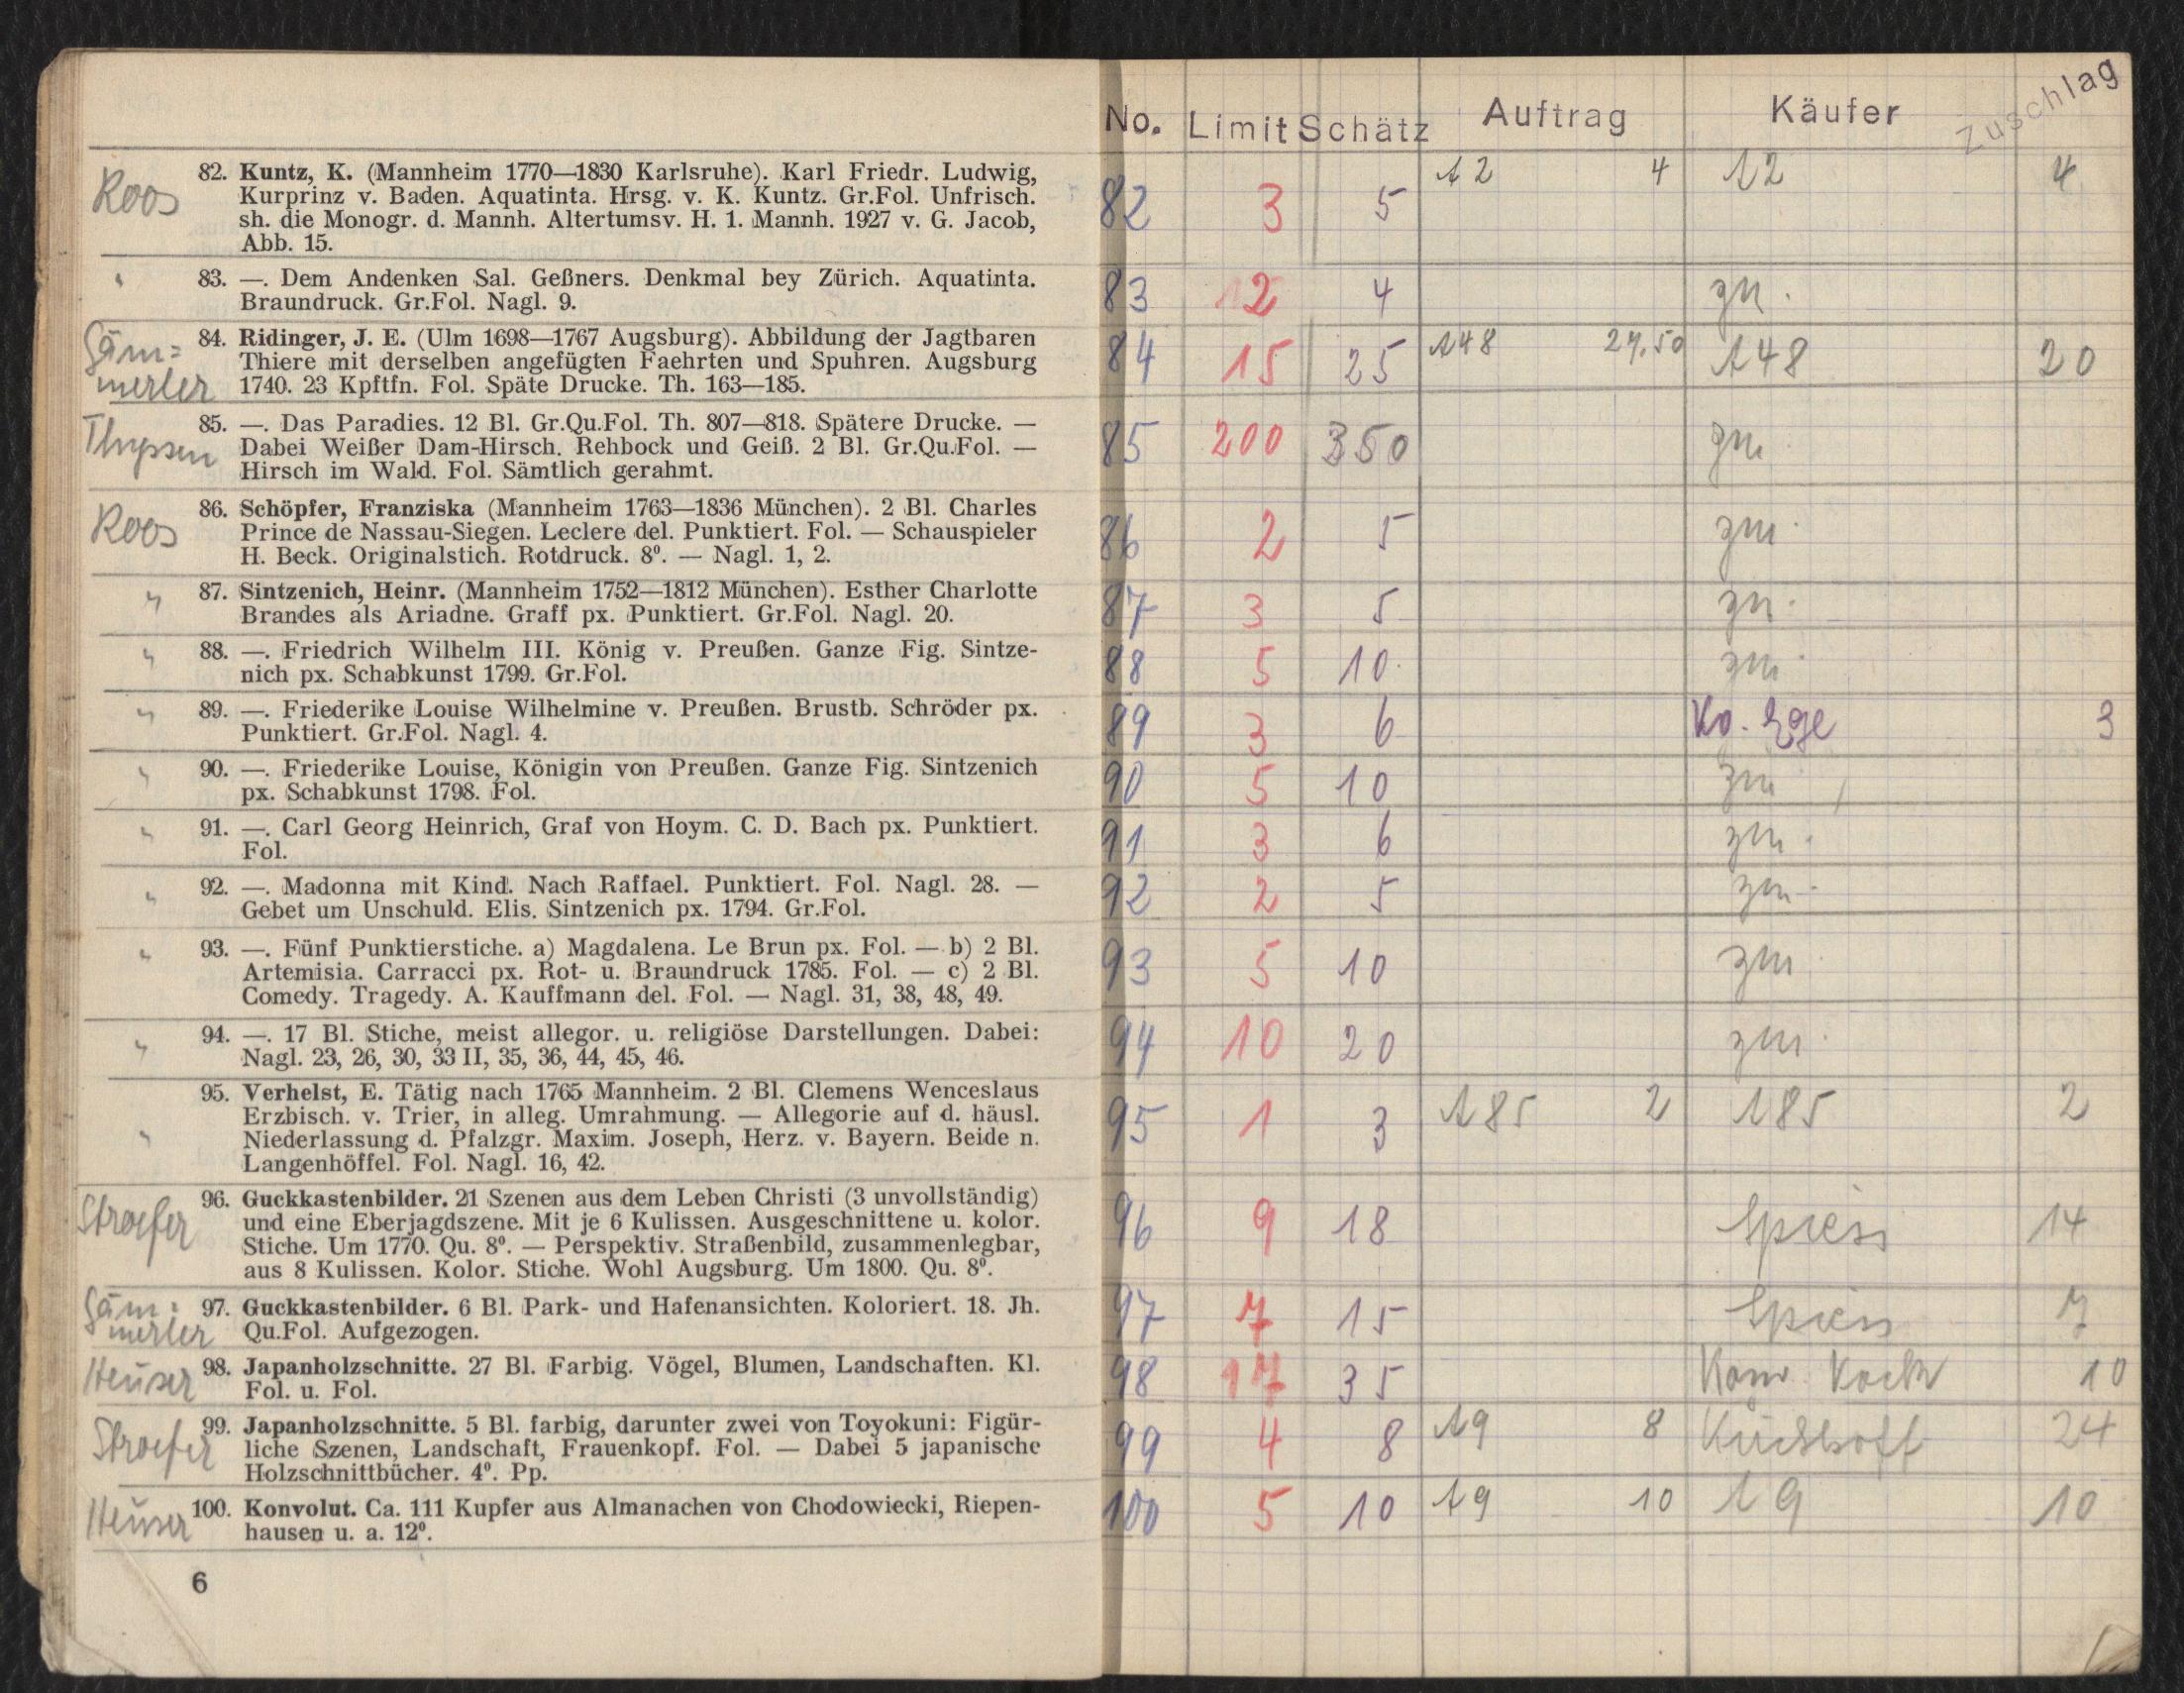 Roos
82. Kuntz, K. (Mannheim 1770—1830 Karlsruhe). Karl Friedr. Ludwig,
Kurprinz v. Baden. Aquatinta. Hrsg. v. K. Kuntz. Gr.Fol. Unfrisch.
sh. die Monogr. d. Mannh. Altertumsv. H. 1. Mannh. 1927 v. G. Jacob,
Abb. 15.
"
83. —. Dem Andenken Sal. Geßners. Denkmal bey Zürich. Aquatinta.
Braundruck. Gr.Fol. Nagl. 9.
Gäm=
merler
84. Ridinger, J. E. (Ulm 1698—1767 Augsburg). Abbildung der Jagtbaren
Thiere mit derselben angefügten Faehrten und Spuhren. Augsburg
1740. 23 Kpftfn. Fol. Späte Drucke. Th. 163—185.
Thyssen
85. —. Das Paradies. 12 Bl. Gr.Qu.Fol. Th. 807—818. Spätere Drucke. —
Dabei Weißer Dam-Hirsch. Rehbock und Geiß. 2 Bl. Gr.Qu.Fol. —
Hirsch im Wald. Fol. Sämtlich gerahmt.
Roos
86. Schöpfer, Franziska (Mannheim 1763—1836 München). 2 Bl. Charles
Prince de Nassau-Siegen. Leclere del. Punktiert. Fol. — Schauspieler
H. Beck. Originalstich. Rotdruck. 8⁰. — Nagl. 1, 2.
"
87. Sintzenich, Heinr. (Mannheim 1752—1812 München). Esther Charlotte
Brandes als Ariadne. Graff px. Punktiert. Gr.Fol. Nagl. 20.
"
88. —. Friedrich Wilhelm III. König v. Preußen. Ganze Fig. Sintze-
nich px. Schabkunst 1799. Gr.Fol.
"
89. —. Friederike Louise Wilhelmine v. Preußen. Brustb. Schröder px.
Punktiert. Gr.Fol. Nagl. 4.
"
90. —. Friederike Louise, Königin von Preußen. Ganze Fig. Sintzenich
px. Schabkunst 1798. Fol.
"
91. —. Carl Georg Heinrich, Graf von Hoym. C. D. Bach px. Punktiert.
Fol.
"
92. —. Madonna mit Kind. Nach Raffael. Punktiert. Fol. Nagl. 28. —
Gebet um Unschuld. Elis. Sintzenich px. 1794. Gr.Fol.
"
93. —. Fünf Punktierstiche. a) Magdalena. Le Brun px. Fol. — b) 2 Bl.
Artemisia. Carracci px. Rot- u. Braundruck 1785. Fol. — c) 2 Bl.
Comedy. Tragedy. A. Kauffmann del. Fol. — Nagl. 31, 38, 48, 49.
"
94. —. 17 Bl. Stiche, meist allegor. u. religiöse Darstellungen. Dabei:
Nagl. 23, 26, 30, 33 II, 35, 36, 44, 45, 46.
"
95. Verhelst, E. Tätig nach 1765 Mannheim. 2 Bl. Clemens Wenceslaus
Erzbisch. v. Trier, in alleg. Umrahmung. — Allegorie auf d. häusl.
Niederlassung d. Pfalzgr. Maxim. Joseph, Herz. v. Bayern. Beide n.
Langenhöffel. Fol. Nagl. 16, 42.
Stroefer
96. Guckkastenbilder. 21 Szenen aus dem Leben Christi (3 unvollständig)
und eine Eberjagdszene. Mit je 6 Kulissen. Ausgeschnittene u. kolor.
Stiche. Um 1770. Qu. 8⁰. — Perspektiv. Straßenbild, zusammenlegbar,
aus 8 Kulissen. Kolor. Stiche. Wohl Augsburg. Um 1800. Qu. 8⁰.
Gäm=
merler
97. Guckkastenbilder. 6 Bl. Park- und Hafenansichten. Koloriert. 18. Jh.
Qu.Fol. Aufgezogen.
Heuser
98. Japanholzschnitte. 27 Bl. Farbig. Vögel, Blumen, Landschaften. Kl.
Fol. u. Fol.
Stroefer
99. Japanholzschnitte. 5 Bl. farbig, darunter zwei von Toyokuni: Figür-
liche Szenen, Landschaft, Frauenkopf. Fol. — Dabei 5 japanische
Holzschnittbücher. 4⁰. Pp.
Heuser
100. Konvolut. Ca. 111 Kupfer aus Almanachen von Chodowiecki, Riepen-
hausen u. a. 12⁰.
6
No. Limit Schätz Auftrag Käufer Zuschlag
82 3 5 A2 4 A2 4
83 2 4
84 15 25 A48 27,50 A48 20
85 200 350
86 2 5
87 3 5
88 5 10
89 3 6 3
90 5 10
91 3 6
92 2 5
93 5 10
94 10 20
95 1 3 A85 2 A85 2
96 9 18 Spiess 14
97 7 15 Spiess 7
98 17 35 Koch 10
99 4 8 A9 8 Kirchhoff 24
100 5 10 A9 10 A9 10